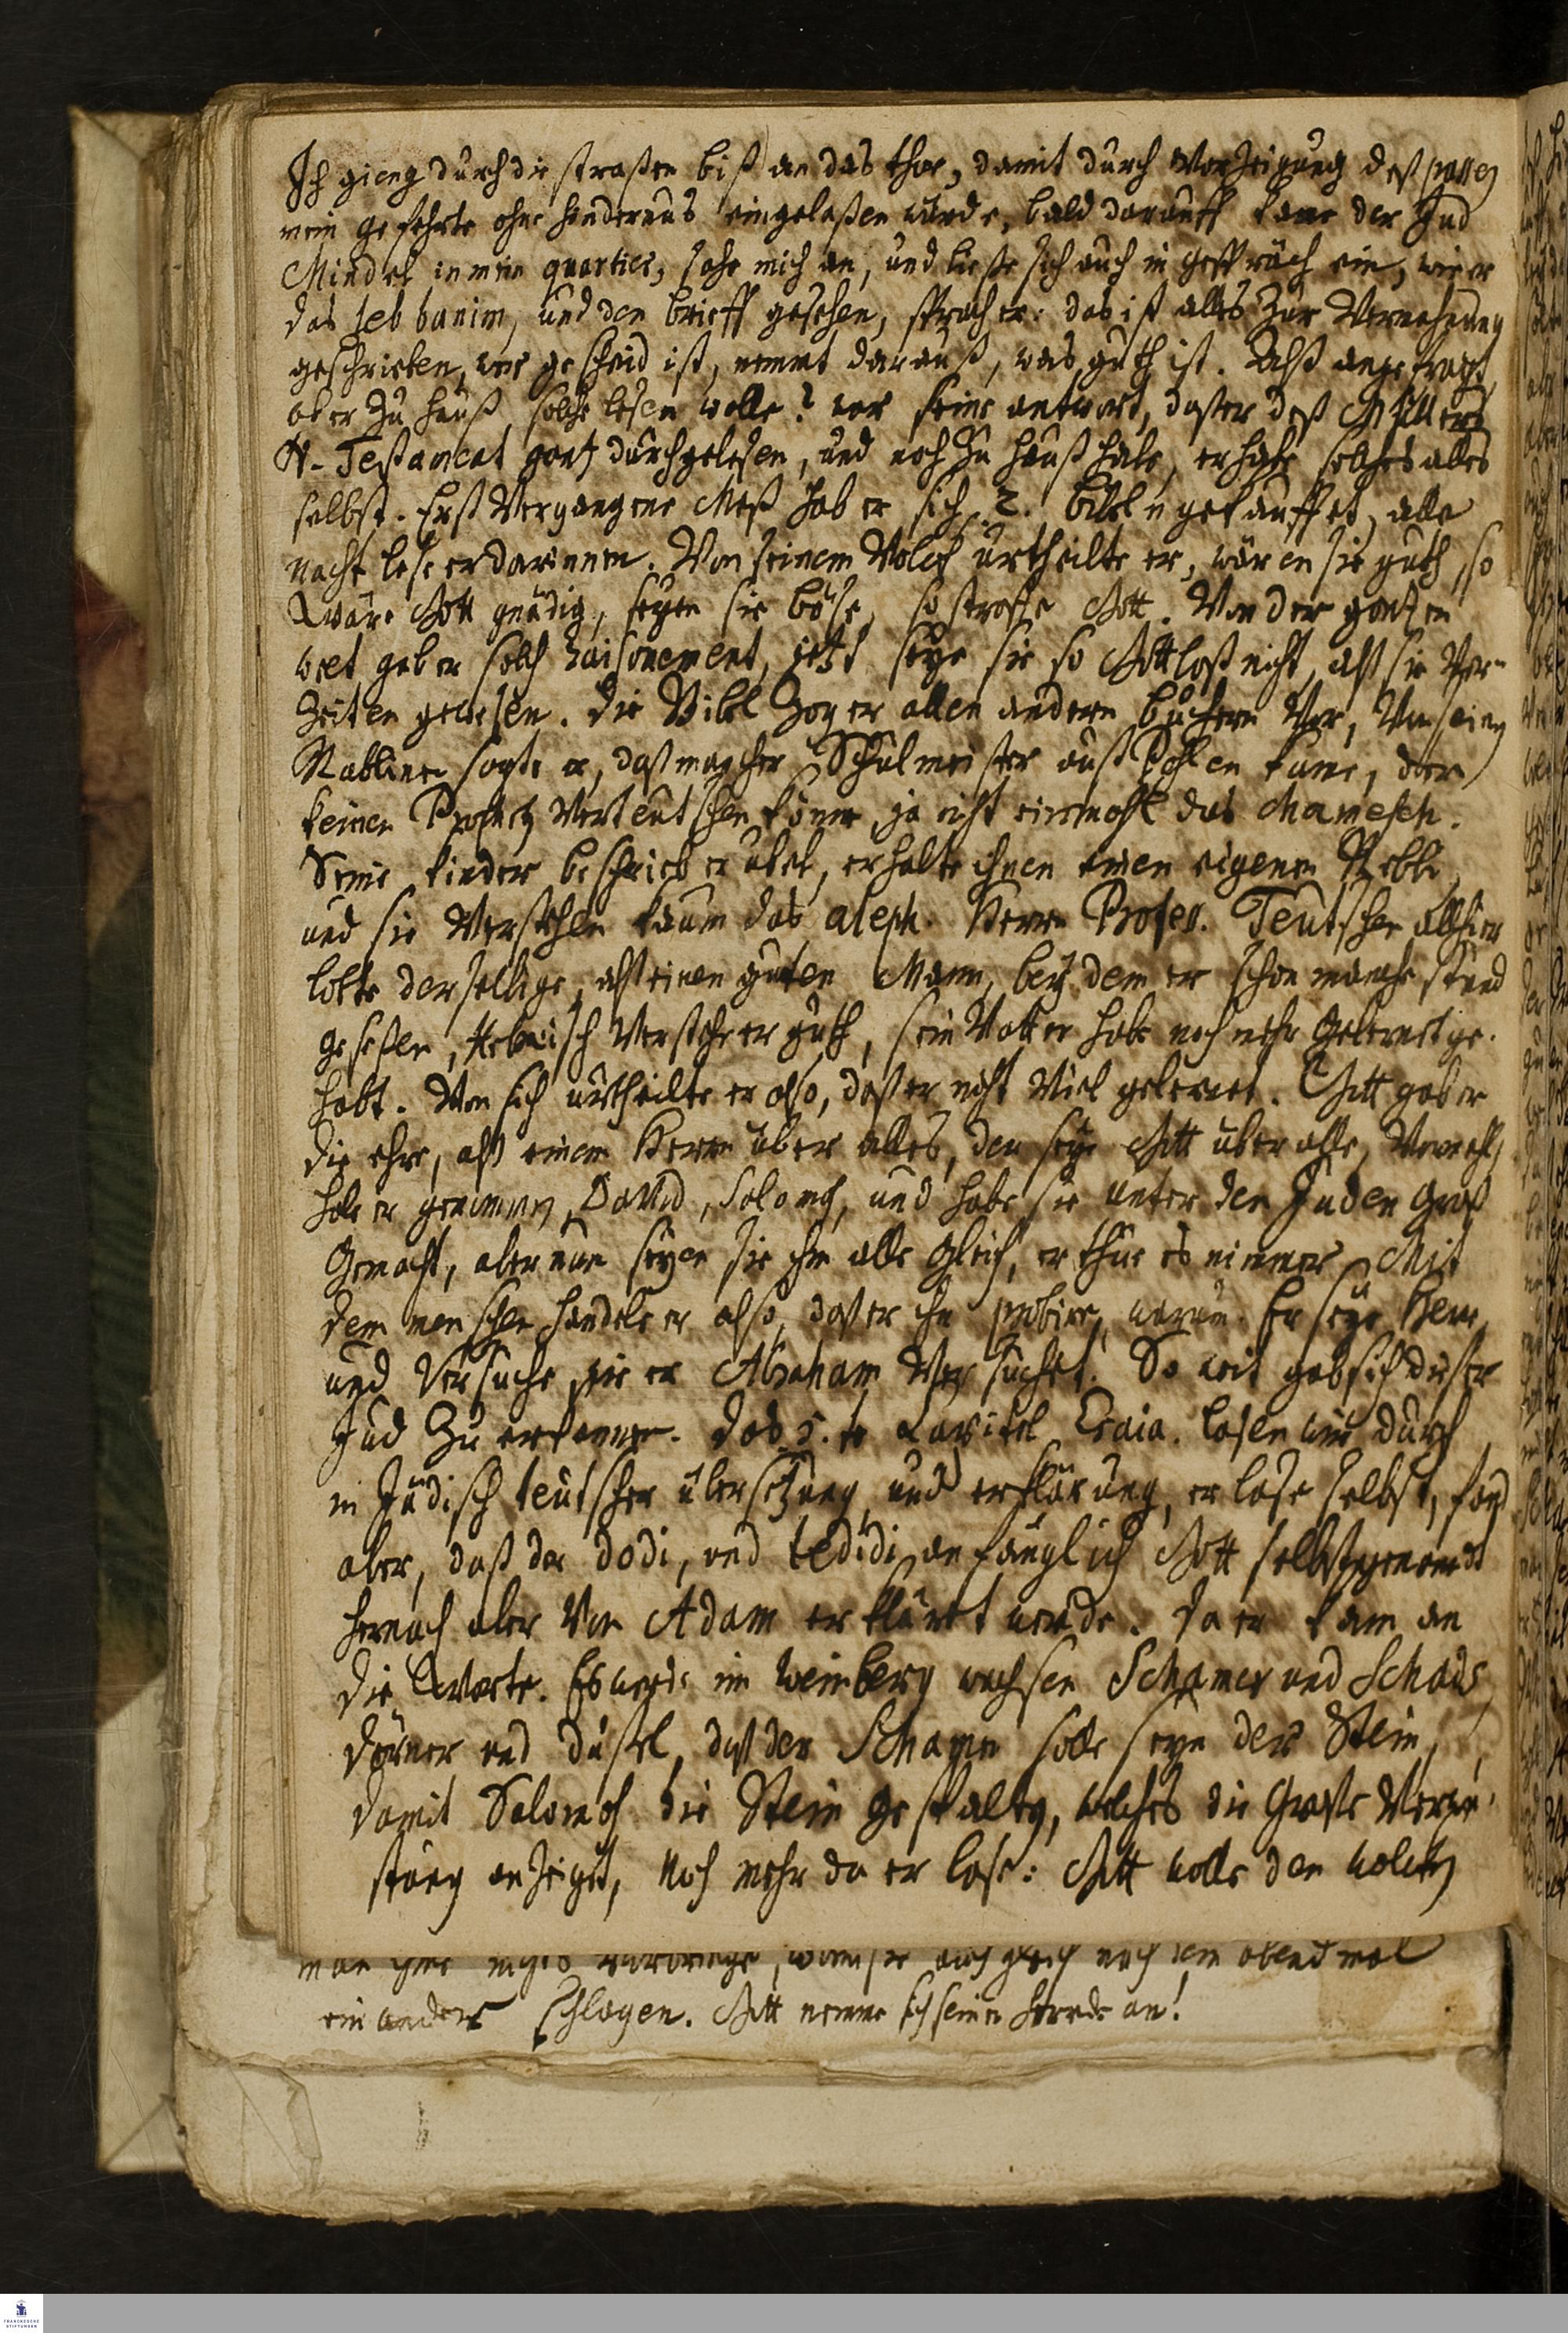 Ich gieng durch die straßen biß an das thor, damit durch Vorzeigung deß passes
mein gefehrte ohne hindernus eingelaßen würde, bald darauff kame der Jud
Mindel in mein quartier, sahe mich an, und ließe sich auch in gespräch ein, wie er
das leb banim, und den brieff gesehen, sprach er: das ist alles zur Vermahnung
geschrieben, wer gescheid ist, nemmt darauß, was guth ist. Alß angefragt,
ob er zu hauß solche lesen wolle? war seine antwort, daß er deß Müllers
N. Testament gantz durchgelesen, und noch zu hauß habe, er habe solches alles
selbst. Erst Vergangene Meß hab er sich 2. bibeln gekauffet, alle
nacht lese er darinnen. Von seinem Volck urtheilte er, wären sie guth, so
wäre Gott gnädig, seyen sie böse, so straffe Gott. Von der gantzen
welt gab er solch raisonement, jetzt seye sie so Gottloß nicht, alß sie Vor-
zeiten gewesen. die Bibel zog er allen andern büchern Vor, Von seinen
Rabbinen sagte er, daß mancher Schulmeister auß Pohlen kame, der
keinen Propheten Verteutschen könne, ja nicht einmahl das Chamesch.
Seine kinder beschrieb er übel, er halte ihnen einen eigenen Rebbi,
und sie Verstehen kaum das aleph. Herrn Profess. Teutschen allhier
lobte derselbige, alß einen guten Mann, bey dem er schon manche stund
geseßen, Hebreisch Verstehe er guth, sein Vatter habe noch mehr Gelernet ge-
habt. Von sich urtheilte er also, daß er nicht Viel gelernet. Gott gab er
die ehre, alß einem Herrn über alles, den seye Gott über alle,
habe er genommen David, Solomoh, und habe sie unter den Juden Groß
Gemacht, aber nun seyen sie ihm alle Gleich, er thue es nimmer. Mit
dem menschen handele er also, daß er ihn probire, warum. Er seye Herr,
und Versuche, wie er Abraham Versuchet. So weit gab sich dießer
Jud zu erkennen. das 5.te Capitel Esaia. lasen wir durch
in Jüdisch teutscher übersetzung, und erklärung, er lase selbst, fand
aber, daß der dodi, und jedidi, anfänglich Gott selbst genennt
hernach aber Von Adam erkläret werde. Da er kam an
die Worte. Es werde im weinberg wachsen Schamer und Schais
dörner und distel, daß der Schamir solle seyn der Stein,
damit Salomoh die Stein gespalten, welches die Große Verwü-
stung anzeiget, Noch mehr da er lase: Gott wolle den wolcken
man ihme nichts vorbringe, wann sie auch gleich nach dem abendmal
einander schlagen. Gott nemme sich seiner heerde an!
FRANCKESCHE
STIFTUNGEN